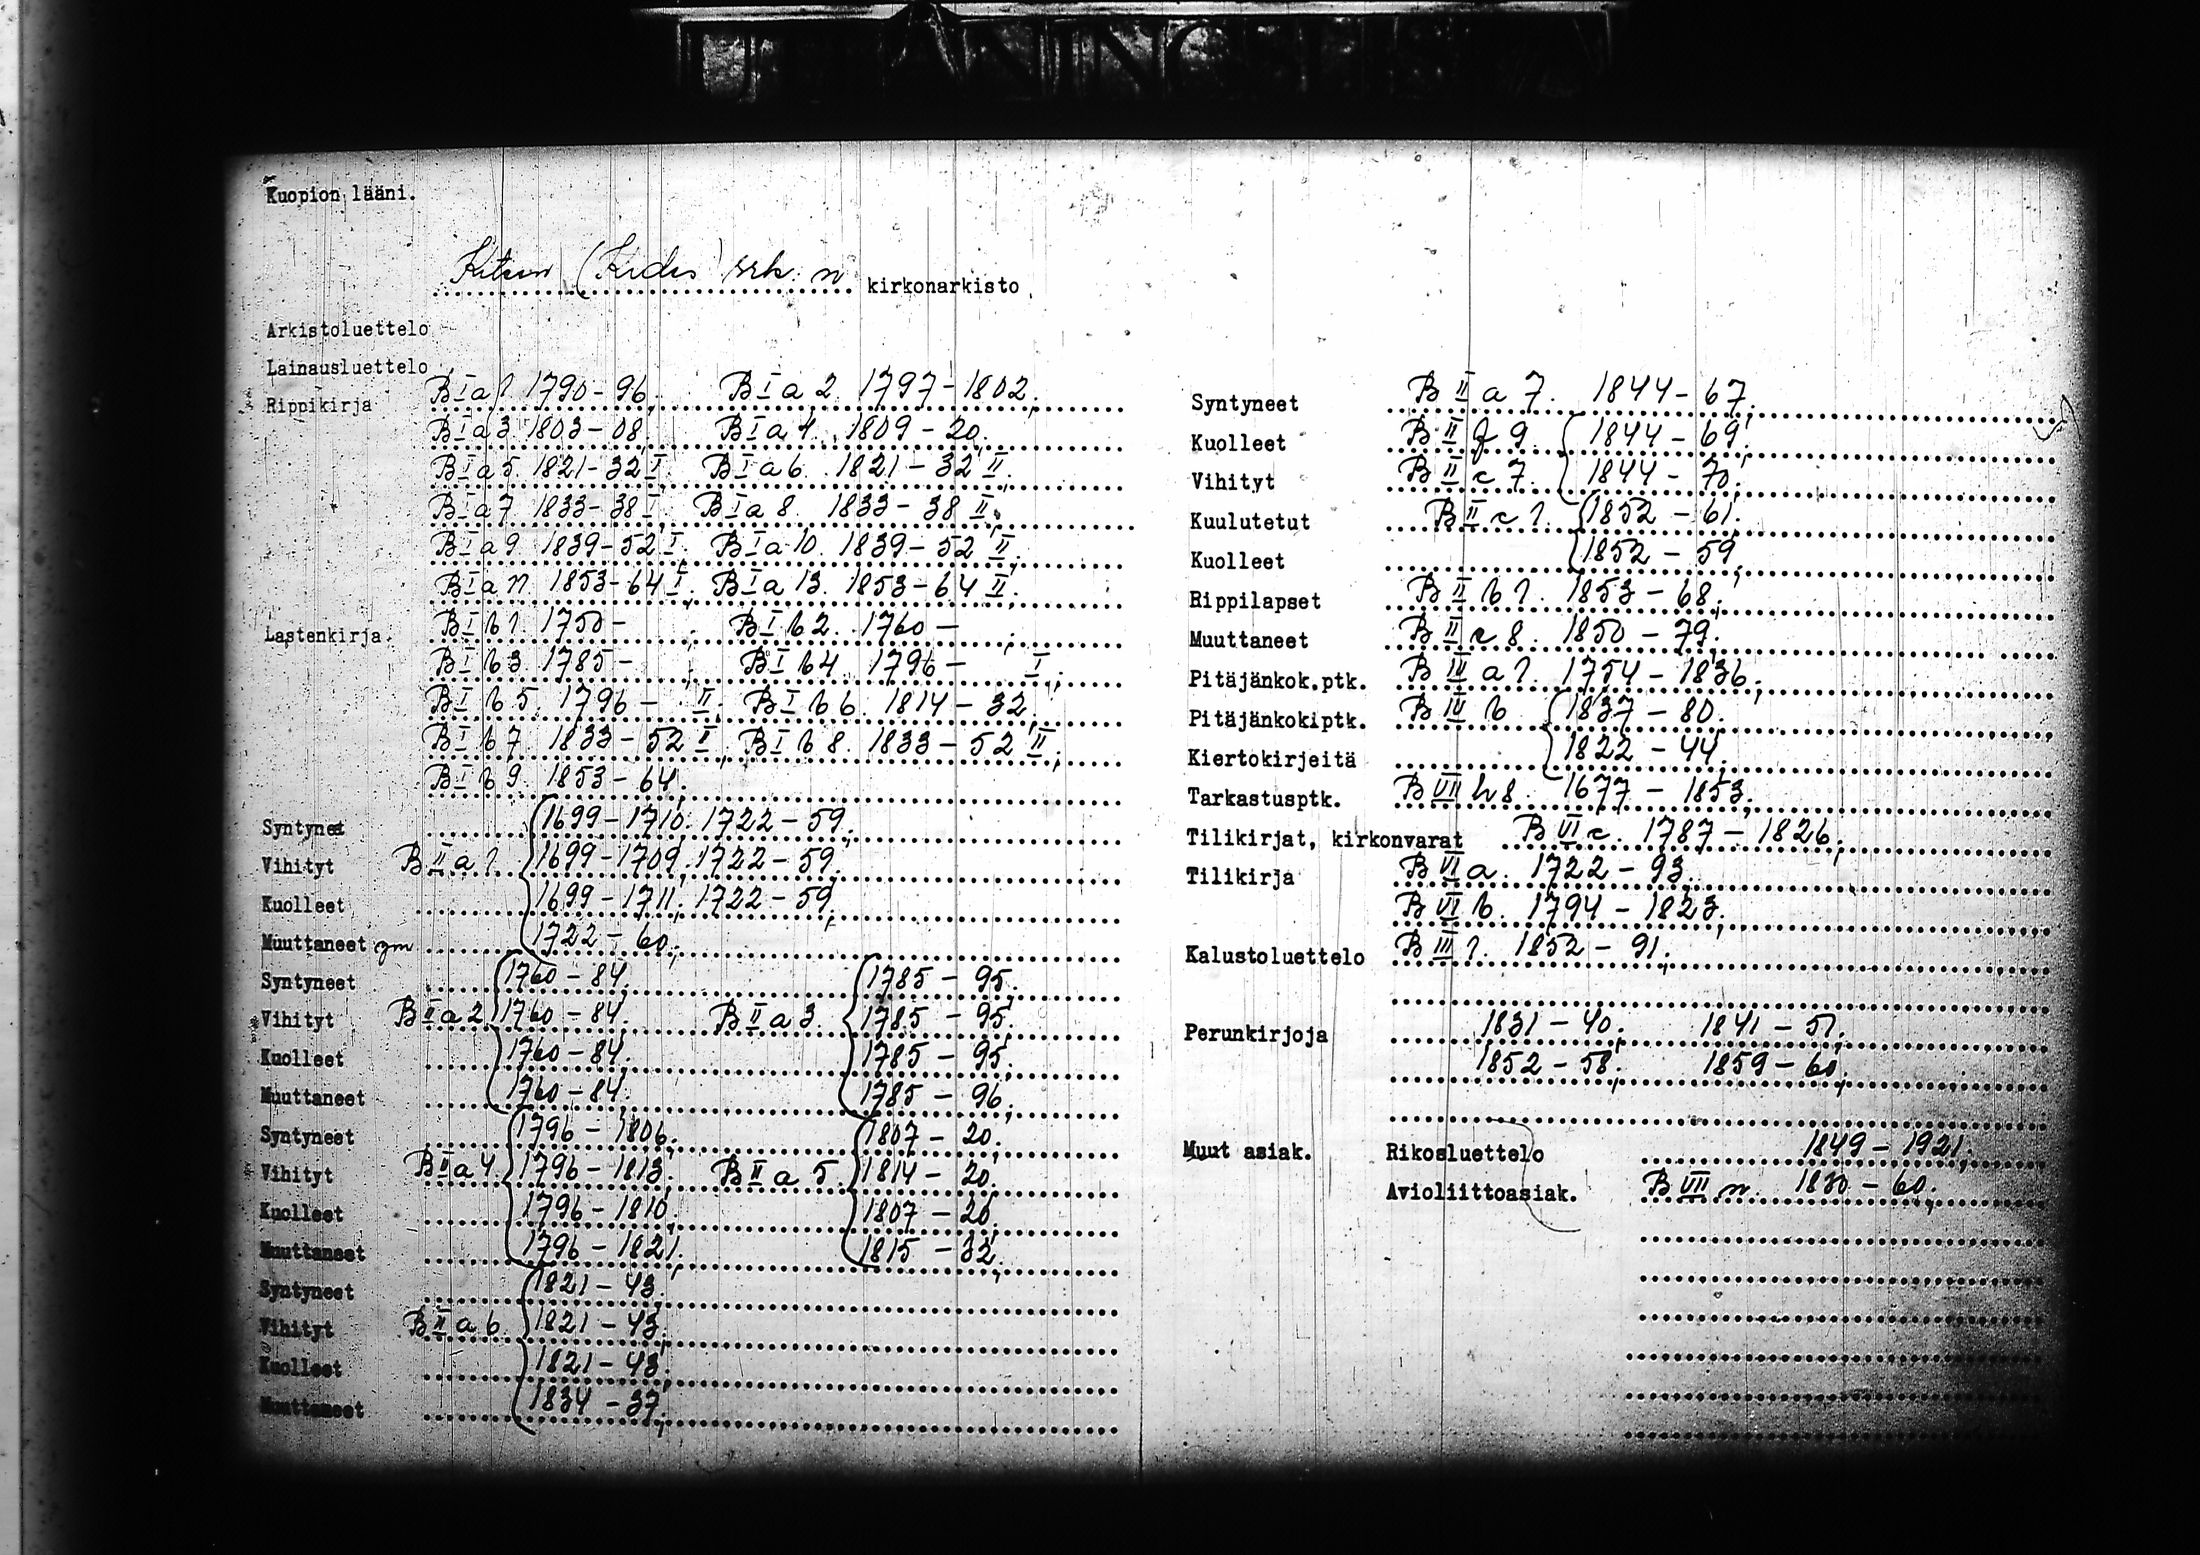 Kuopion lääni.
Kiteen (Kides) srk:n kirkonarkisto
Arkistoluettelo
Lainausluettelo
Rippikirja B I a 1 1790-96; B I a 2. 1797-1802;
B I a 3. 1803-08. B I a 4. 1809-20;
B I a 5. 1821-32 I; B I a 6. 1821-32 II;
B I a 7. 1833-38 I; B I a 8. 1833-38 II;
B I a 9. 1839-52 I. B I a 10. 1839-52 II;
B I a 11. 1853-64 I; B I a 13. 1853-64 II;
Lastenkirja. B I b 1. 1750- ; B I b 2. 1760- ;
B I b 3. 1785- ; B I b 4. 1796- I;
B I b 5. 1796- II; B I b 6. 1814-32;
B I b 7. 1833-52 I; B I b 8. 1833-52 II;
B I b 9. 1853-64;
Syntyneet 1699-1710; 1722-59;
Vihityt B II a 1 1699-1709; 1722-59;
Kuolleet 1699-1711; 1722-59;
Muuttaneet ym 1722-60;
Syntyneet 1760-84; 1785-95;
Vihityt B II a 2 1760-84; B II a 3. 1785-95;
Kuolleet 1760-84; 1785-95;
Muuttaneet 1760-84; 1785-96;
Syntyneet 1796-1806; 1807-20;
Vihityt B II a 4 1796-1813; B II a 5. 1814-20;
Kuolleet 1796-1810; 1807-20;
Muuttaneet 1796-1821; 1815-32;
Syntyneet 1821-43;
Vihityt B II a 6 1821-43;
Kuolleet 1821-43;
Muuttaneet 1834-37;
Syntyneet B II a 7. 1844-67;
Kuolleet B II f 9. 1844-69;
Vihityt B II c 7. 1844-70;
Kuulutetut B II c 1. 1852-61;
Kuolleet 1852-59;
Rippilapset B II b 1. 1853-68;
Muuttaneet B II c 8. 1850-79;
Pitäjänkok.ptk. B III a 1. 1754-1836;
Pitäjänkokiptk. B III b 1837-80.
Kiertokirjeitä 1822-44;
Tarkastusptk. B VII h 8. 1677-1853;
Tilikirjat, kirkonvarat B VI c. 1787-1826;
Tilikirja B VI a. 1722-93;
B VI b. 1794-1823;
Kalustoluettelo B III 1. 1852-91;
Perunkirjoja 1831-40; 1841-51;
1852-58; 1859-60;
Muut asiak. Rikosluettelo 1849-1921;
Avioliittoasiak. B VII n. 1830-60;